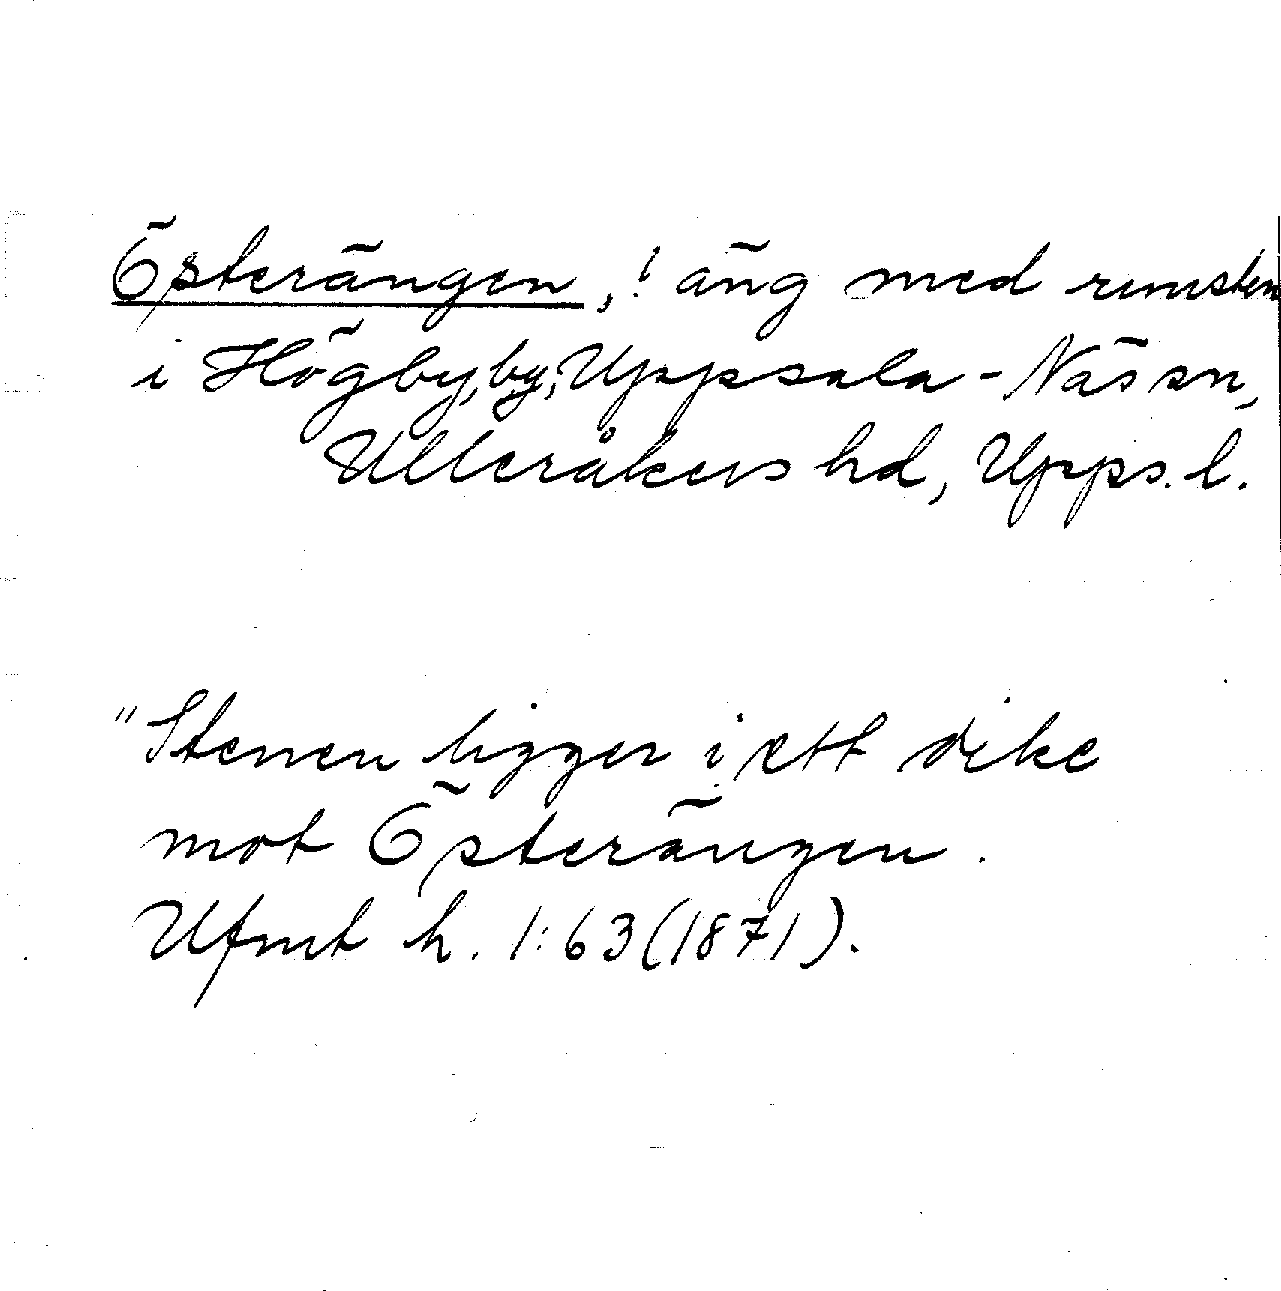 Österängen, ! äng med runsten
i Högby, by, Uppsala-Näs sn,
Ulleråkers hd, Upps. l.
"Stenen ligger i ett dike
mot Österängen.
Ufmt h. 1:63 (1871).